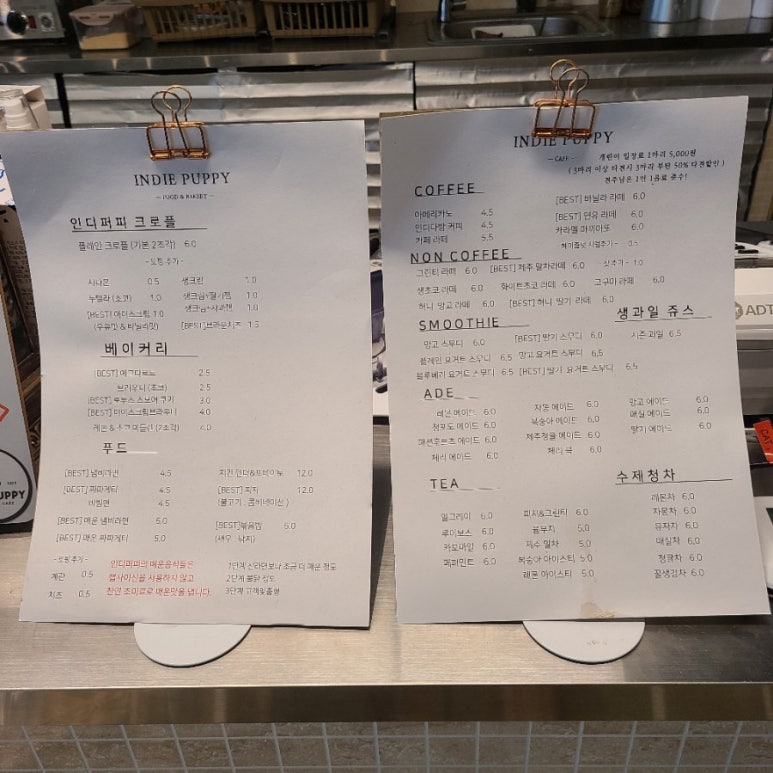 INDIE PUPPY
— FOOD & BAKERY —
인디퍼피 크로플
플레인 크로플 (기본 2조각) 6.0
- 토핑 추가 -
시나몬 0.5 생크림 1.0
누텔라 (초코) 1.0 생크림+딸기잼 1.0
[BEST] 아이스크림 1.0 생크림+사과잼 1.0
(우유맛 & 바닐라맛) [BEST] 브라운치즈 1.5
베이커리
[BEST] 에그타르트 2.5
브라우니 (초코) 2.5
[BEST] 르뱅스 스모어 쿠키 3.0
[BEST] 아이스크림브라우니 4.0
레몬 & 초코 마들렌 (2조각) 4.0
푸드
[BEST] 냄비라면 4.5 치킨텐더&포테이토 12.0
[BEST] 짜파게티 4.5 [BEST] 피자 12.0
비빔면 4.5 (불고기, 콤비네이션)
[BEST] 매운 냄비라면 5.0 [BEST]볶음밥 5.0
[BEST] 매운 짜파게티 5.0 (새우, 낙지)
- 토핑 추가 -
계란 0.5
치즈 0.5
인디퍼피의 매운음식들은
캡사이신을 사용하지 않고
천연 조미료로 매운맛을 냅니다.
1단계 신라면보다 조금 더 매운 정도
2단계 불닭 정도
3단계 고객맞춤형
INDIE PUPPY
— CAFE —
개린이 입장료 1마리 5,000원
(3마리 이상 다견시 3마리 부턴 50% 다견할인)
견주님은 1인 1음료 준수!
COFFEE
아메리카노 4.5 [BEST] 바닐라 라떼 6.0
인디다방 커피 4.5 [BEST] 연유 라떼 6.0
카페 라떼 5.5 카라멜 마끼아또 6.0
헤이즐넛 시럽추가 - 0.5
샷추가 - 1.0
NON COFFEE
그린티 라떼 6.0 [BEST] 제주 말차라떼 6.0
생초코 라떼 6.0 화이트초코 라떼 6.0 고구마 라떼 6.0
허니 망고 라떼 6.0 [BEST] 허니 딸기 라떼 6.0
SMOOTHIE
망고 스무디 6.0 [BEST] 딸기 스무디 6.0
플레인 요거트 스무디 6.5 망고 요거트 스무디 6.5
블루베리 요거트 스무디 6.5 [BEST] 딸기 요거트 스무디 6.5
생과일 쥬스
시즌 과일 6.5
ADE
레몬 에이드 6.0 자몽 에이드 6.0 망고 에이드 6.0
청포도 에이드 6.0 복숭아 에이드 6.0 매실 에이드 6.0
패션후르츠 에이드 6.0 제주청귤 에이드 6.0 딸기 에이드 6.0
체리 에이드 6.0 체리 콕 6.0
TEA
얼그레이 6.0 피치&그린티 6.0
루이보스 6.0 5.0
카모마일 6.0 제주 말차 5.0
페퍼민트 6.0 복숭아 아이스티 5.0
레몬 아이스티 5.0
수제청차
레몬차 6.0
자몽차 6.0
유자차 6.0
매실차 6.0
청귤차 6.0
꿀생강차 6.0
PUPPY
ADT